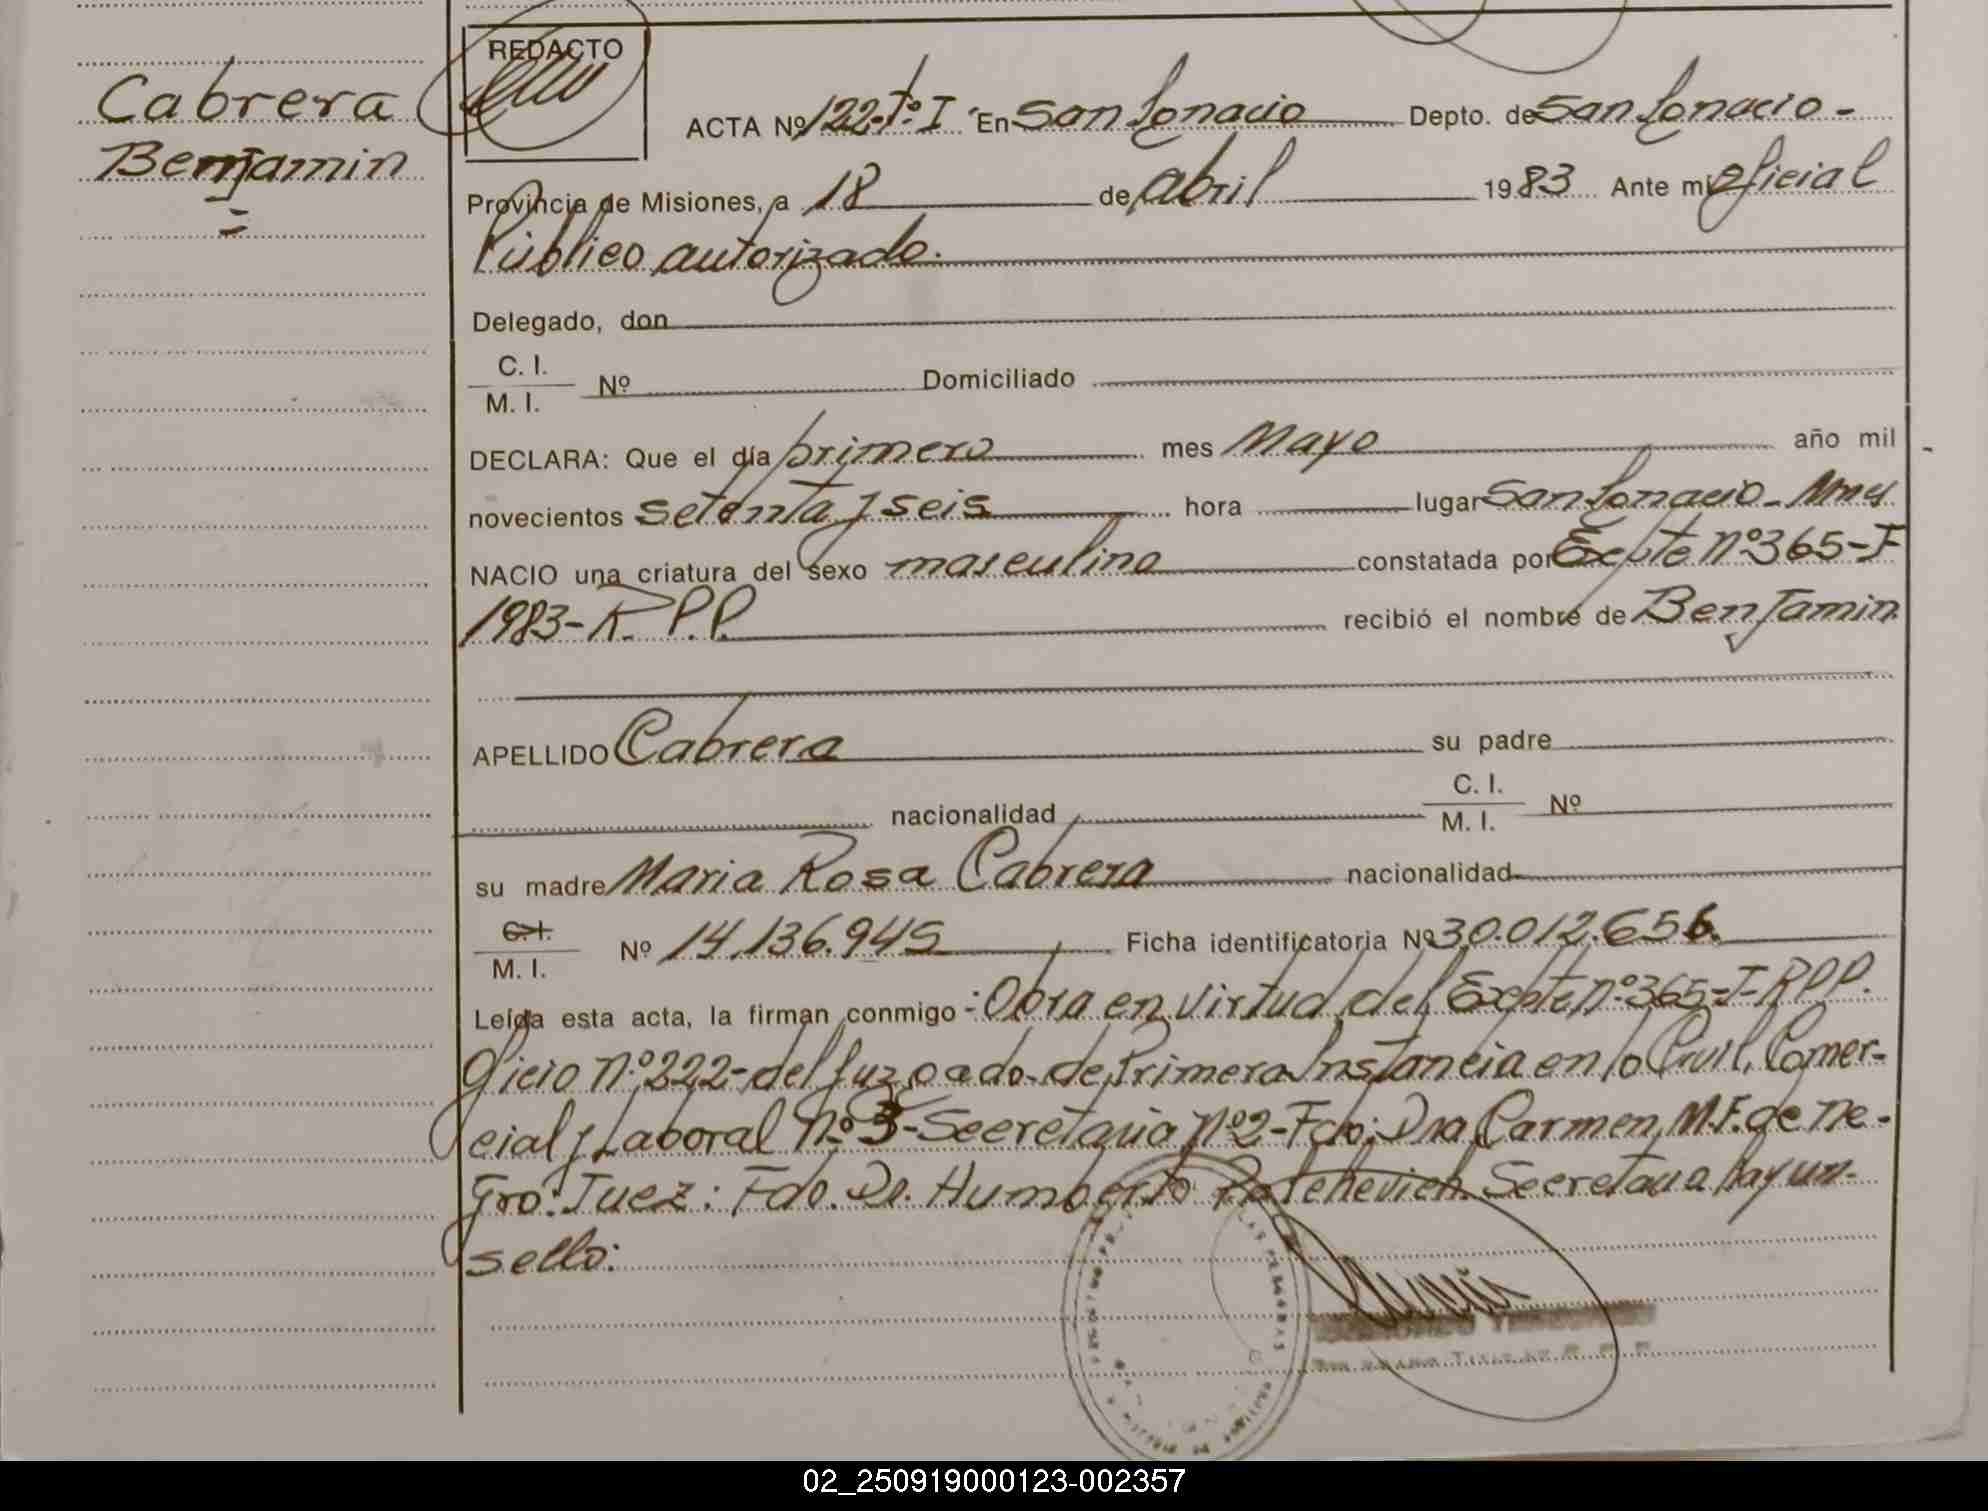 Cabrera
Benjamin
REDACTO
ACTA Nº 122-Tº I En San Ignacio Depto. de San Ignacio-
Provincia de Misiones, a 18 de abril 1983 Ante mi oficial
Público autorizado.
Delegado, don
C. I.
M. I. Nº Domiciliado
DECLARA: Que el día primero mes Mayo año mil
novecientos setenta y seis hora lugar San Ignacio - Mnes
NACIO una criatura del sexo masculino constatada por Expte Nº 365-F
1983- R.P.P. recibió el nombre de Benjamin
APELLIDO Cabrera su padre
nacionalidad C. I.
M. I. Nº
su madre Maria Rosa Cabrera nacionalidad
C. I.
M. I. Nº 14.136.945 Ficha identificatoria Nº 30.012.656.
Leída esta acta, la firman conmigo -: Obra en virtud del Expte nº 365-F-RPP.
Oficio Nº 222- del Juzgado de Primera Instancia en lo Civil, Comer-
cial y Laboral Nº 3- Secretaria Nº 2- Fdo: Dra Carmen M.F. de Ne-
gro: Juez: Fdo. Dr. Humberto Secretaria hay un
sello:
02_250919000123-002357